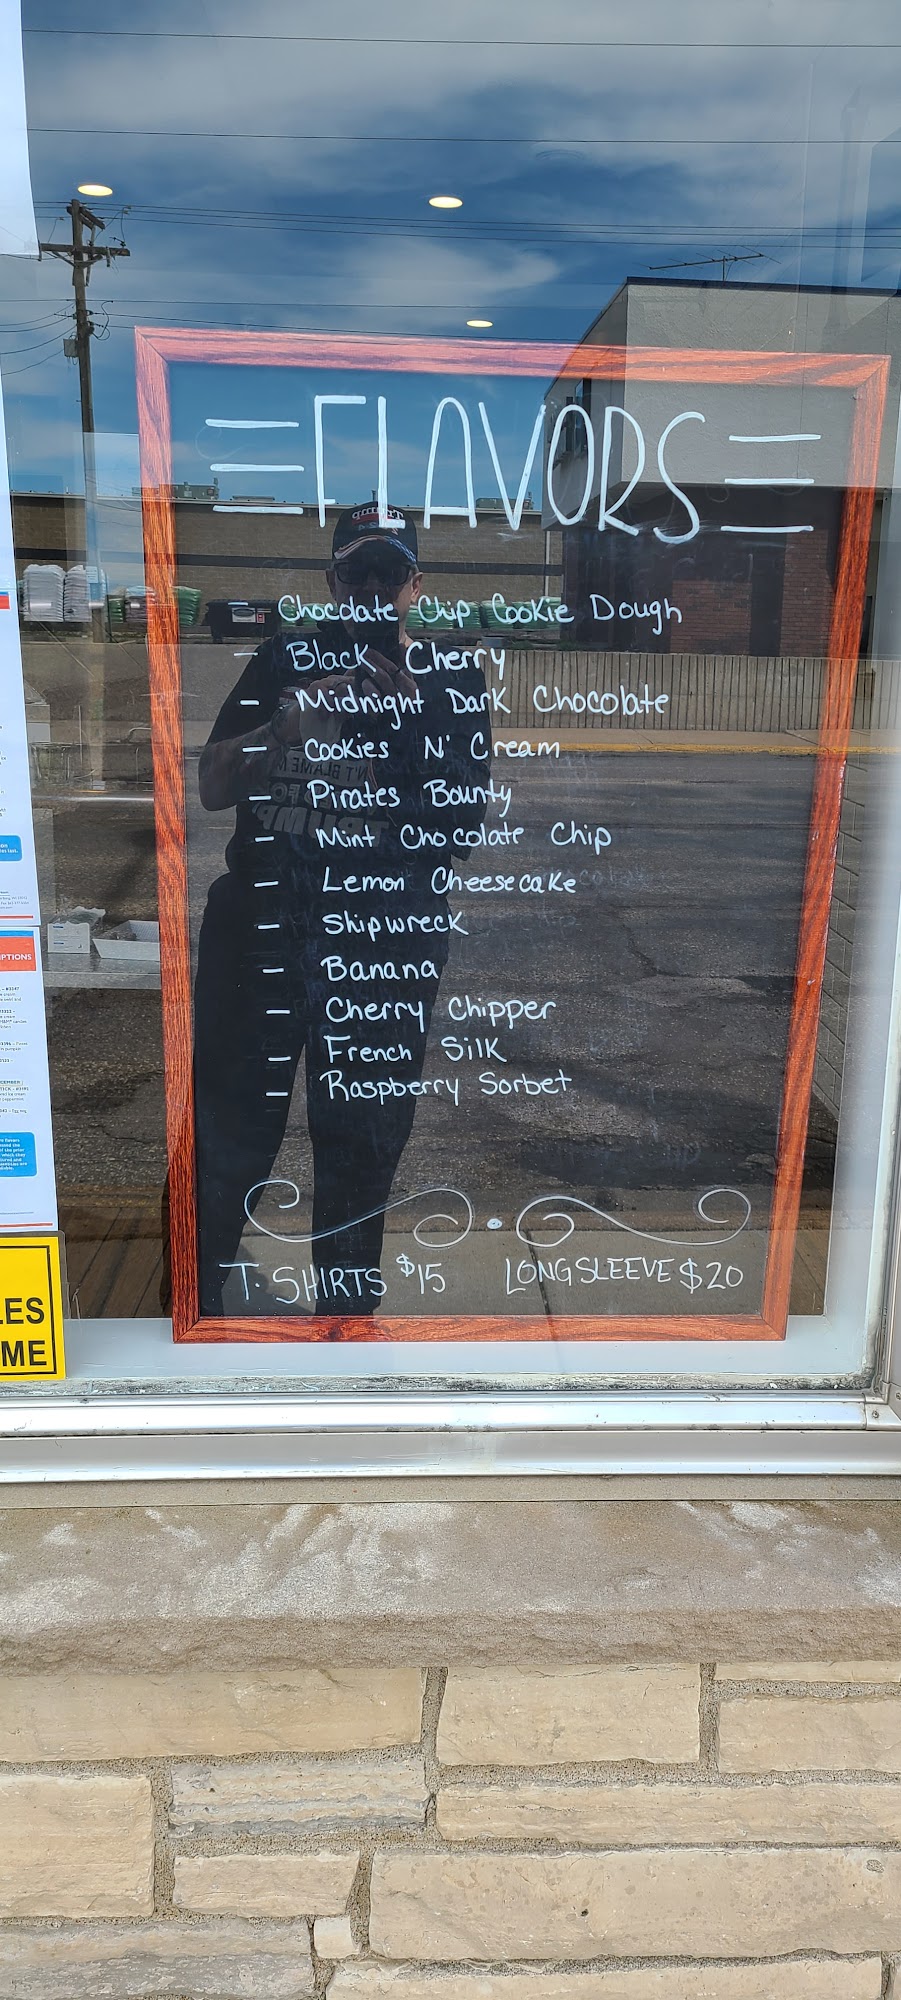 FLAVORS
- Chocolate Chip Cookie Dough
- Black Cherry
- Midnight Dark Chocolate
- Cookies N' Cream
- Pirates Bounty
- Mint Chocolate Chip
- Lemon Cheesecake
- Shipwreck
- Banana
- Cherry Chipper
- French Silk
- Raspberry Sorbet
T-SHIRTS $15 LONGSLEEVE $20
LES
ME
PTIONS
TRUMP